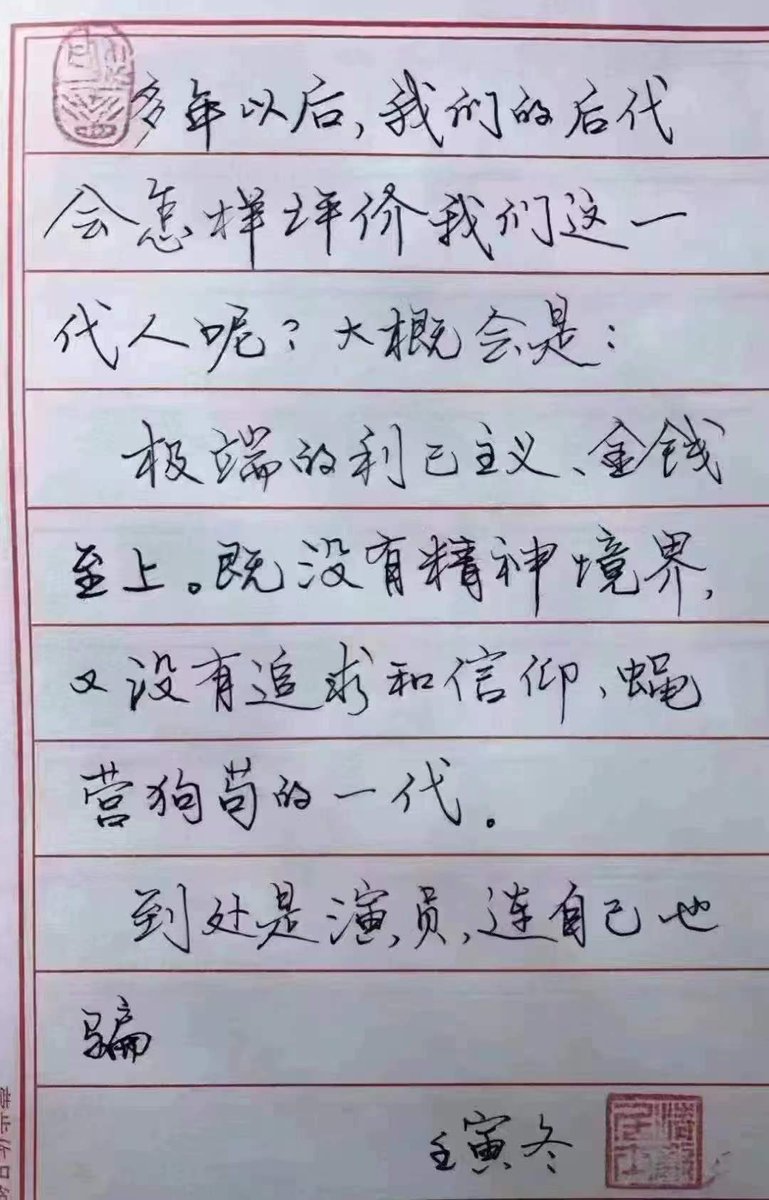 多年以后,我们的后代
会怎样评价我们这一
代人呢?大概会是:
极端的利己主义、金钱
至上。既没有精神境界,
又没有追求和信仰、蝇
营狗苟的一代。
到处是演员,连自己也
骗
壬寅冬